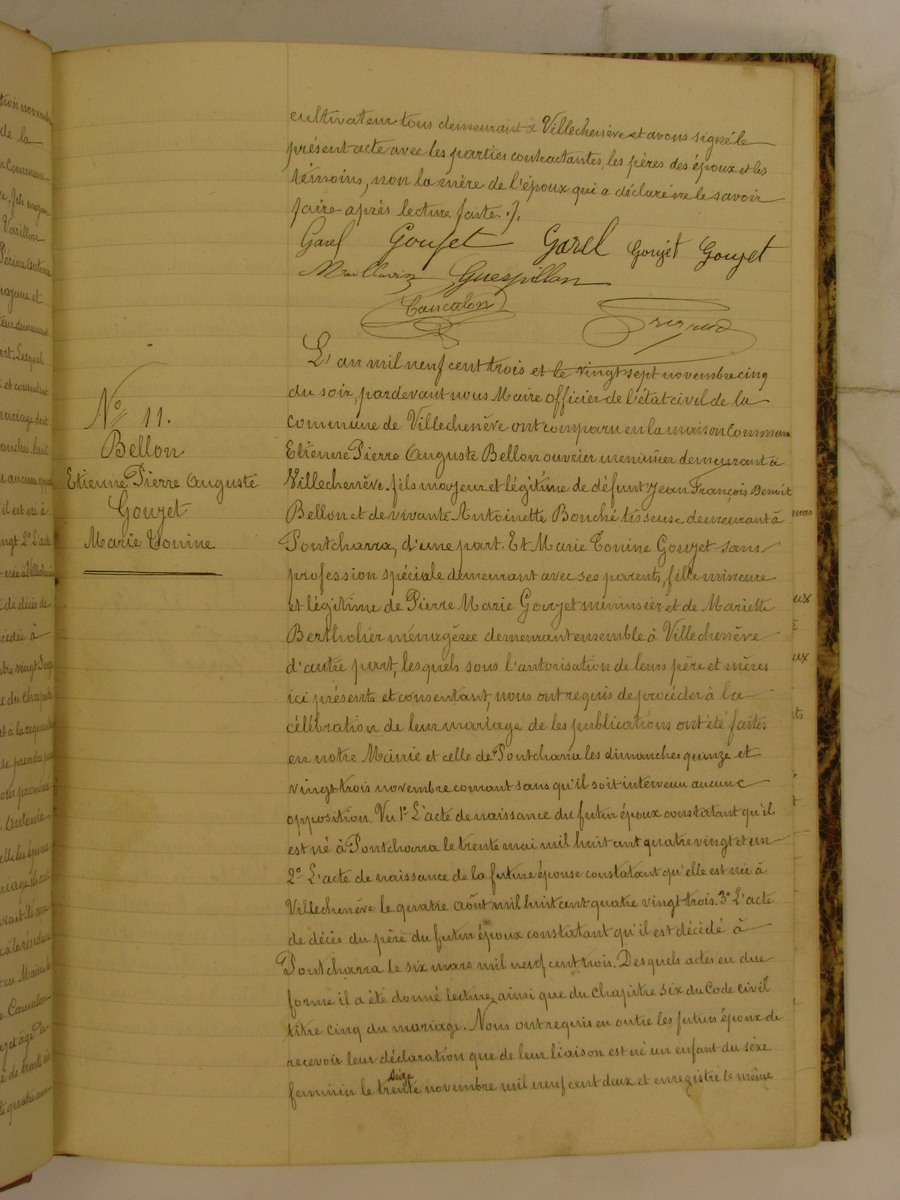 cultivateur tous demeurant à Villechenève et avons signé le
présent acte avec les parties contractantes, les pères des époux et les
témoins, non la mère de l'époux qui a déclaré ne le savoir
faire après lecture faite. ./.
Garel Goujet Garel Goujet Goujet
Guespillon
Cancalon
L'an mil neuf cent trois et le vingt sept novembre cinq
du soir, pardevant nous Maire officier de l'état civil de la
commune de Villechenève ont comparu en la maison Commune
Etienne Pierre Auguste Bellon ouvrier menuisier demeurant à
Villechenève. fils majeur et légitime de défunt Jean François Benoit
Bellon et de vivante Antoinette Bonché tisseuse demeurant à
Pontcharra, d'une part. Et Marie Tonine Goujet sans
profession spéciale demeurant avec ses parents, fille mineure
et légitime de Pierre Marie Goujet menuisier et de Mariette
Bertholier ménagère demeurant ensemble à Villechenève
d'autre part, lesquels sous l'autorisation de leurs père et mères
ici présents et consentant, nous ont requis de procéder à la
célébration de leur mariage de les publications ont été faites
en notre Mairie et celle de Pontcharra les dimanches quinze et
vingt trois novembre courant sans qu'il soit intervenu aucune
opposition. Vu 1° L'acte de naissance du futur époux constatant qu'il
est né à Pontcharra le trente mai mil huit cent quatre vingt et un
2° L'acte de naissance de la future épouse constatant qu'elle est née à
Villechenève le quatre août mil huit cent quatre vingt trois. 3° L'acte
de décès du père du futur époux constatant qu'il est décédé à
Pontcharra le six mars mil neuf cent trois. Desquels actes en due
forme il a été donné lecture, ainsi que du chapitre six du Code civil
titre cinq du mariage. Nous ont requis en outre les futurs époux de
recevoir leur déclaration que de leur liaison est né un enfant du sexe
féminin le trente novembre mil neuf cent deux et enregistré le même
N° 11.
Bellon
Etienne Pierre Auguste
Goujet
Marie Tonine